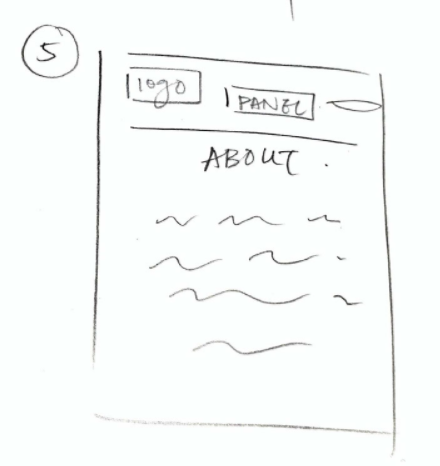 5
logo
PANEL
ABOUT.